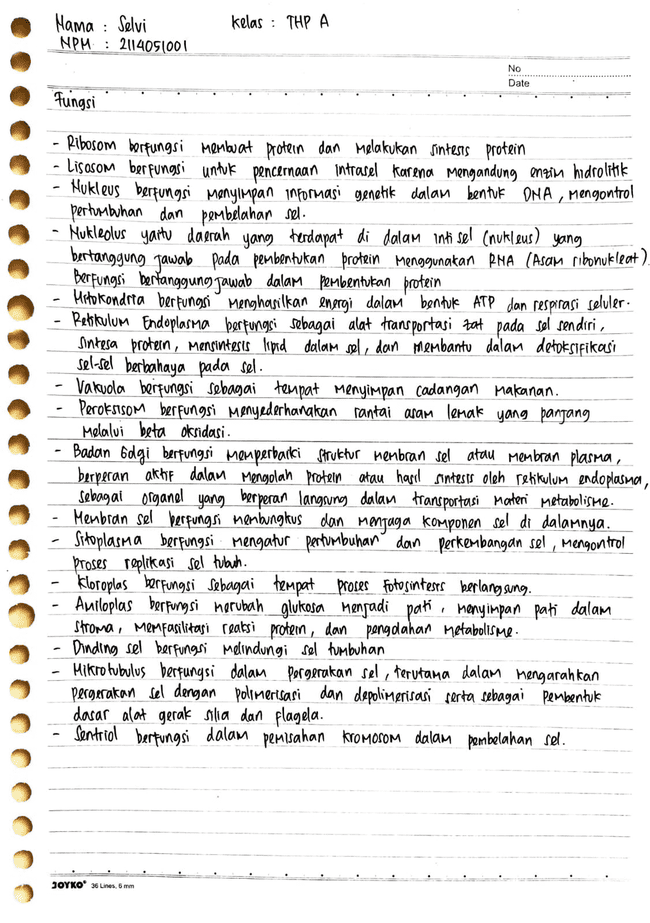 Nama : Selvi Kelas : THP A
NPM : 2114051001
No
Date
Fungsi
- Ribosom berfungsi membuat protein dan melakukan sintesis protein
- Lisosom berfungsi untuk pencernaan intrasel karena mengandung enzim hidrolitik
- Nukleus berfungsi menyimpan informasi genetik dalam bentuk DNA, mengontrol
pertumbuhan dan pembelahan sel.
- Nukleolus yaitu daerah yang terdapat di dalam inti sel (nukleus) yang
bertanggung jawab pada pembentukan protein menggunakan RNA (Asam ribonukleat).
Berfungsi bertanggung jawab dalam pembentukan protein
- Mitokondria berfungsi menghasilkan energi dalam bentuk ATP dan respirasi seluler.
- Retikulum Endoplasma berfungsi sebagai alat transportasi zat pada sel sendiri,
sintesa protein, mensintesis lipid dalam sel, dan membantu dalam detoksifikasi
sel-sel berbahaya pada sel.
- Vakuola berfungsi sebagai tempat menyimpan cadangan makanan.
- Peroksisom berfungsi menyederhanakan rantai asam lemak yang panjang
melalui beta oksidasi.
- Badan Golgi berfungsi memperbaiki struktur membran sel atau membran plasma,
berperan aktif dalam mengolah protein atau hasil sintesis oleh retikulum endoplasma,
sebagai organel yang berperan langsung dalam transportasi materi metabolisme.
- Membran sel berfungsi membungkus dan menjaga komponen sel di dalamnya.
- Sitoplasma berfungsi mengatur pertumbuhan dan perkembangan sel, mengontrol
proses replikasi sel tubuh.
- Kloroplas berfungsi sebagai tempat proses fotosintesis berlangsung.
- Amiloplas berfungsi merubah glukosa menjadi pati, menyimpan pati dalam
stroma, memfasilitasi reaksi protein, dan pengolahan metabolisme.
- Dinding sel berfungsi melindungi sel tumbuhan
- Mikrotubulus berfungsi dalam pergerakan sel, terutama dalam mengarahkan
pergerakan sel dengan polimerisasi dan depolimerisasi serta sebagai pembentuk
dasar alat gerak silia dan flagela.
- Sentriol berfungsi dalam pemisahan kromosom dalam pembelahan sel.
JOYKO® 36 Lines, 6 mm